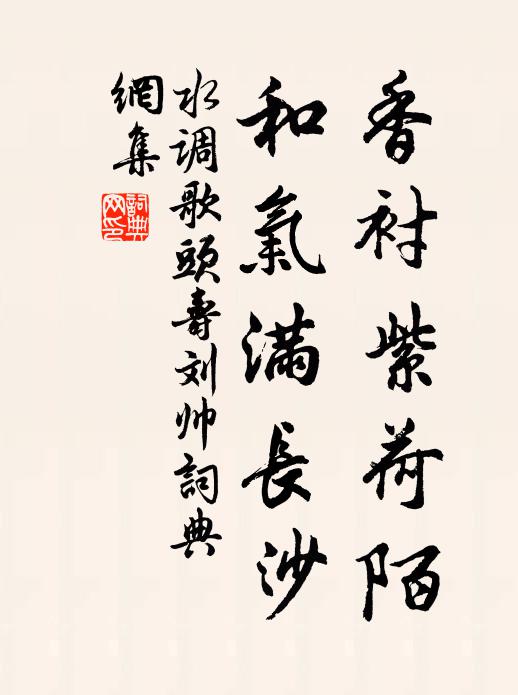 香衬紫荷陌
和氣滿長沙
水调歌頭壽刘帅詞典
網集
詞典
网印